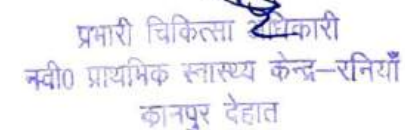 प्रभारी चिकित्सा अधिकारी
नवी० प्राथमिक स्वास्थ्य केन्द्र-रनियाँ
कानपुर देहात